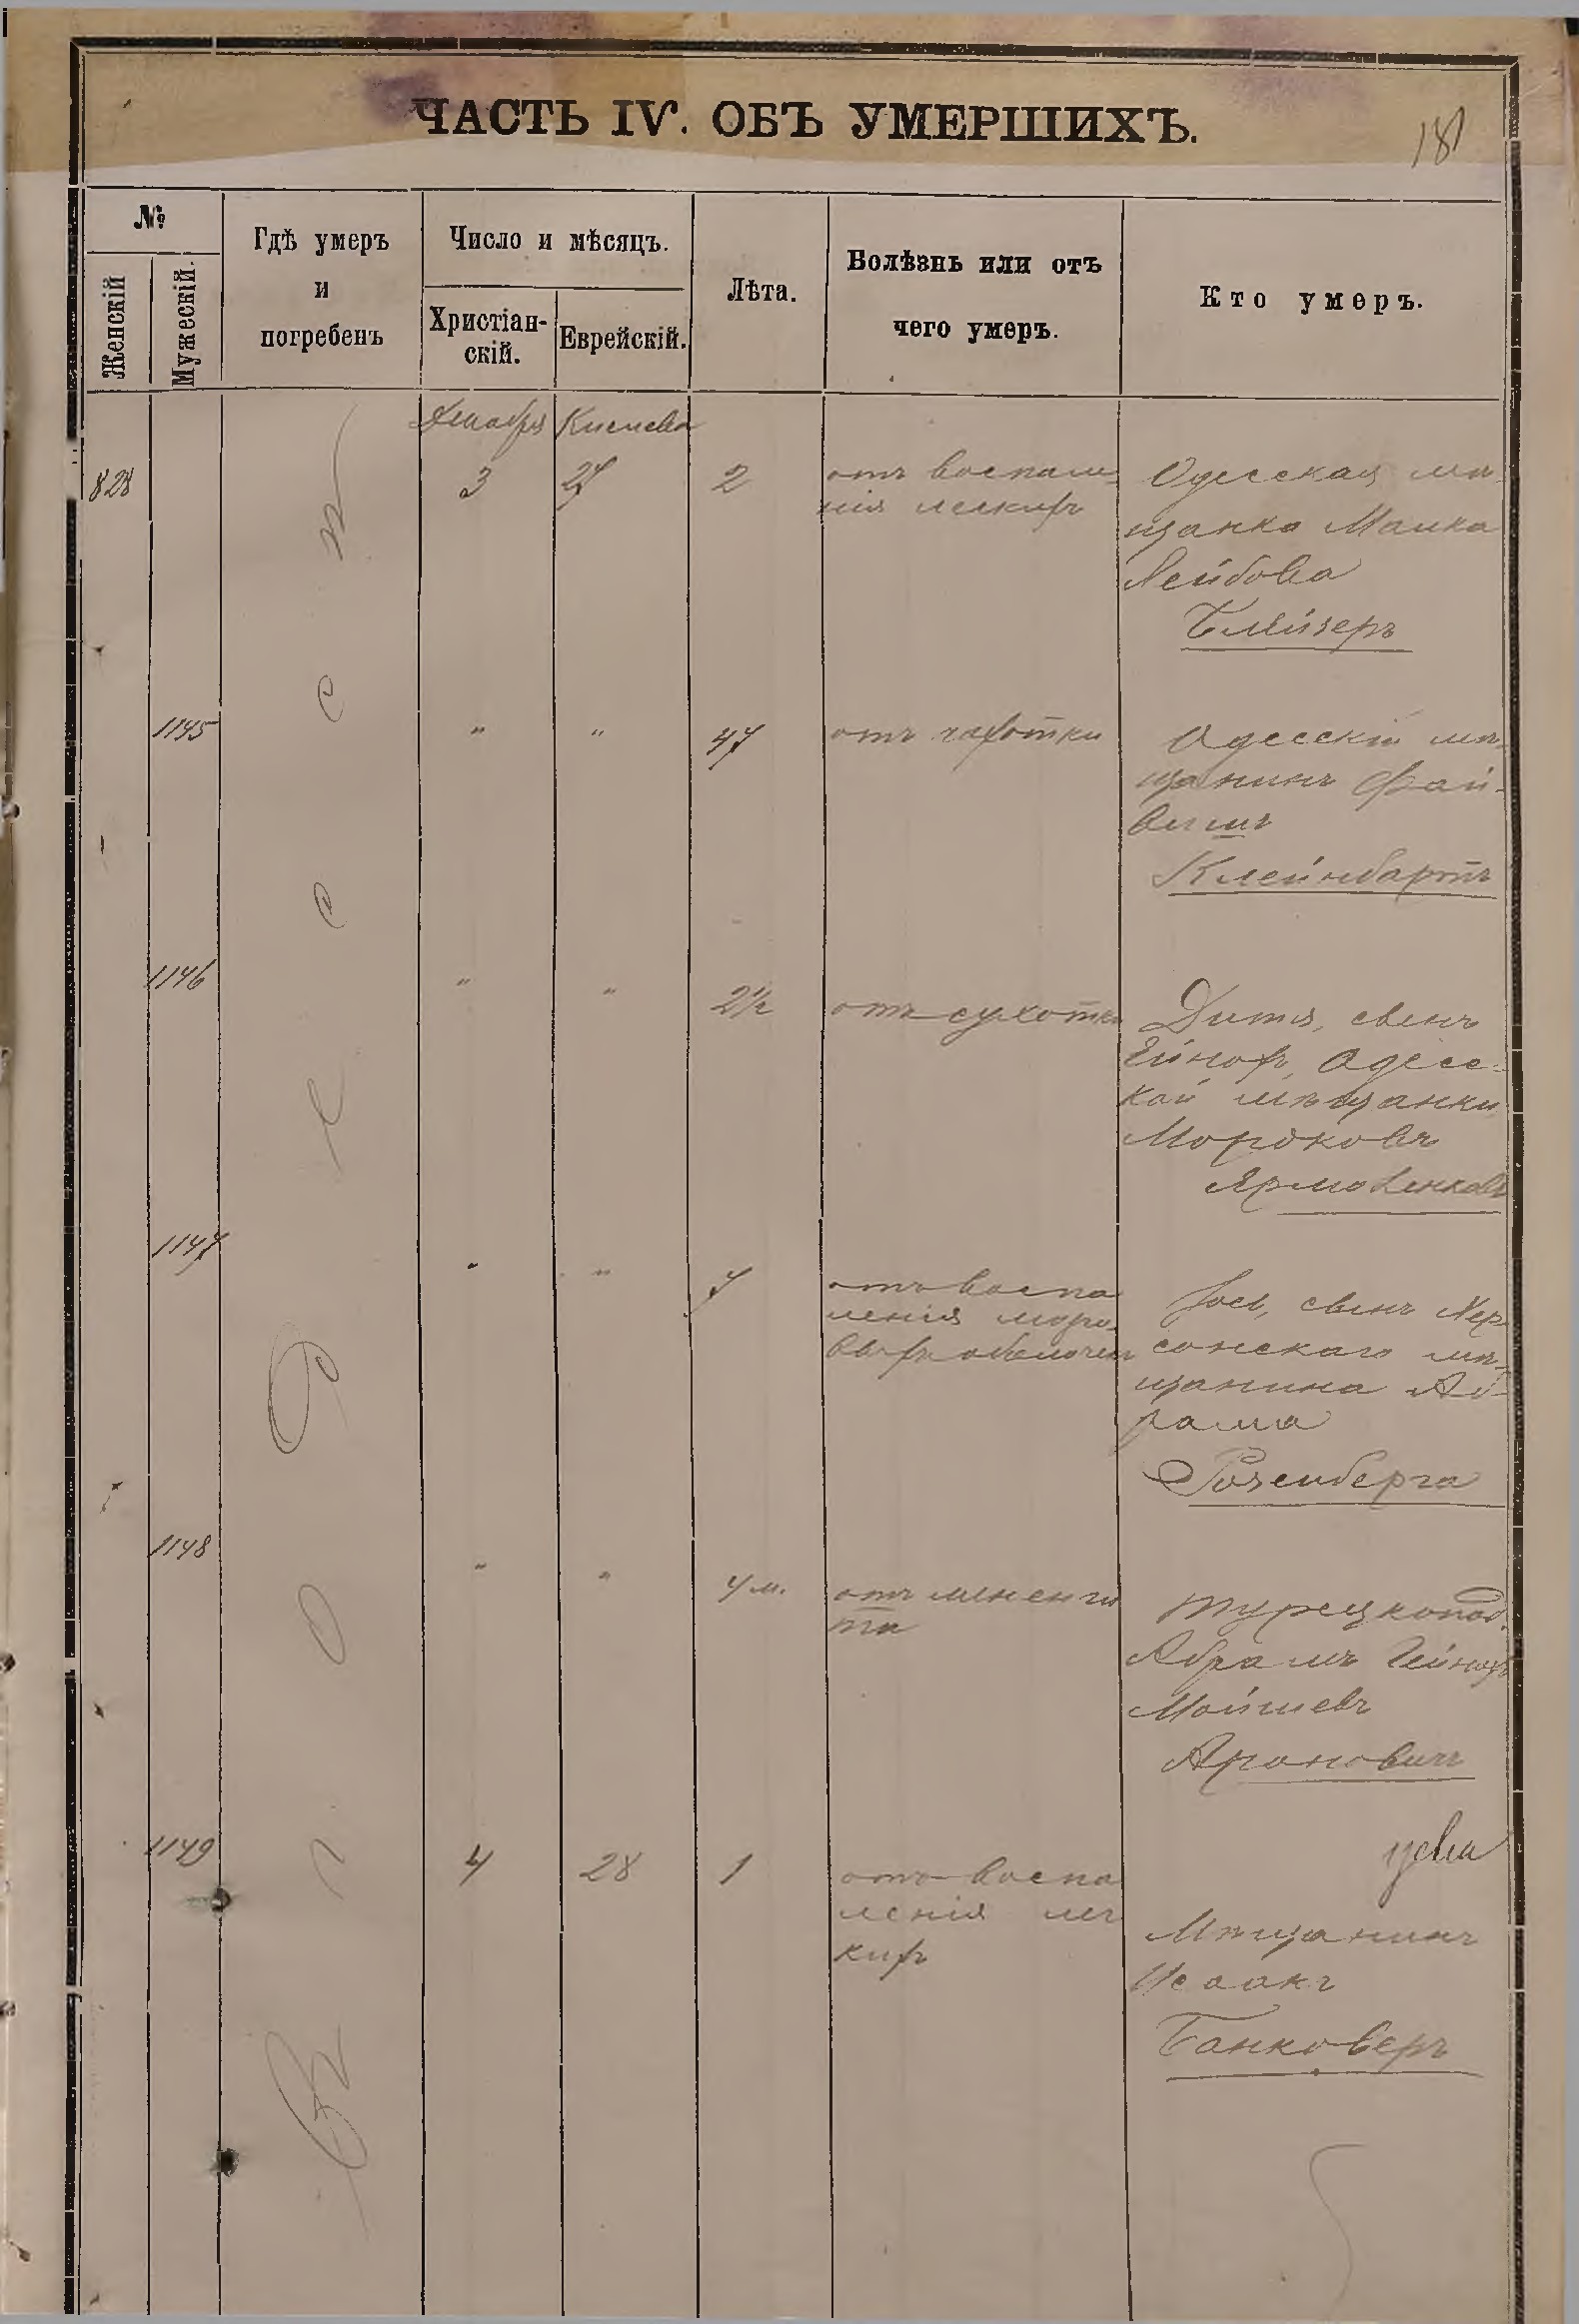 ЧАСТЬ IV. ОБЪ УМЕРШИХЪ.
181
№
Женскій
Мужескій.
Гдѣ умеръ
и
погребенъ
Число и мѣсяцъ.
Христіан-
скій.
Еврейскій.
Лѣта.
Болѣзнь или отъ
чего умеръ.
Кто умеръ.
Въ г. Одессѣ
Декабря Кислева
828 3 27 2
отъ воспале-
нія легкихъ
Одесская мѣ-
щанка Малка
Лейбова
Блейзеръ
1145 " " 47
отъ чахотки
Одесскій мѣ-
щанинъ Фай-
вишъ
Клейнбартъ
1146 " " 2½
отъ сухотки
Дитя, сынъ
Одесс-
кой мѣщанки
Мордковъ
1147 " " 7
отъ воспа
ленія мозго-
выхъ оболочекъ
Іось, сынъ Хер
сонскаго мѣ-
щанина Аб-
рама
Розенберга
1148 " " 4 м.
отъ менинги
та
Турецкопод.
Абрамъ
Мойшевъ
Ароновичъ
1149 4 28 1
отъ воспа
ленія лег
кихъ
Мѣщанинъ
Исаакъ
Банковеръ